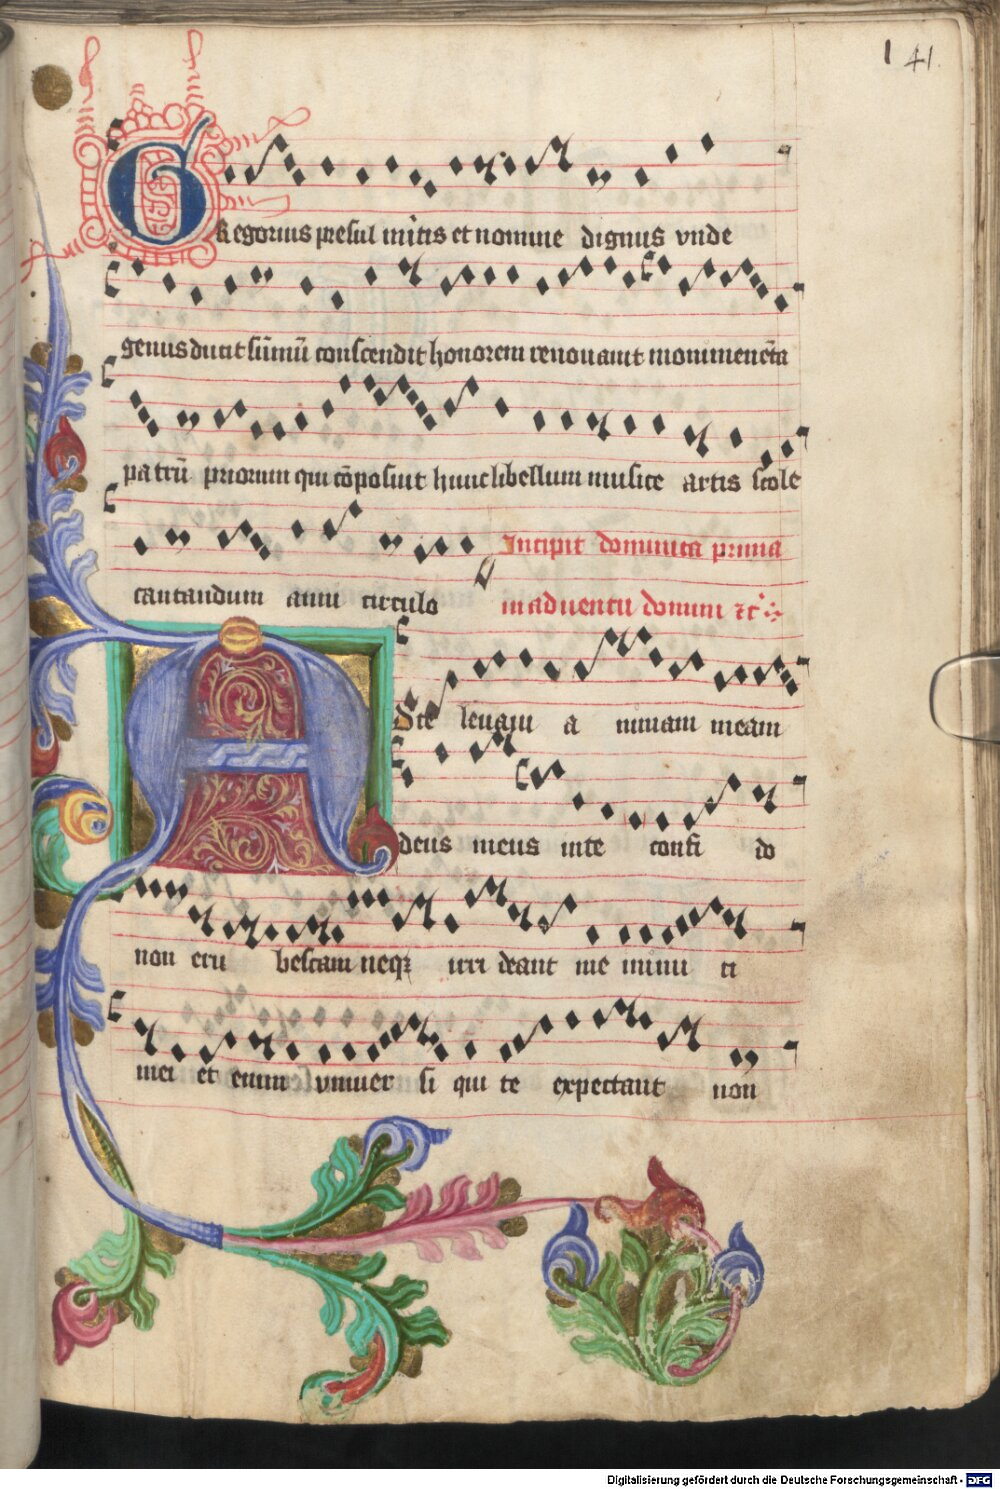 141.
GRegorius presul mitis et nomine dignus vnde
genus ducit sūmū conscendit honorem renouauit monimenēta
patrū priorum qui cōposuit hunc libellum musice artis scole
cantandum anni circulo
Incipit dominica prima
in aduentu domini
AD te leuaui a nimam meam
deus meus in te confi do
non eru bescam neqz irri deant me inimi ci
mei et enim vniuer si qui te expectant non
Digitalisierung gefördert durch die Deutsche Forschungsgemeinschaft - DFG